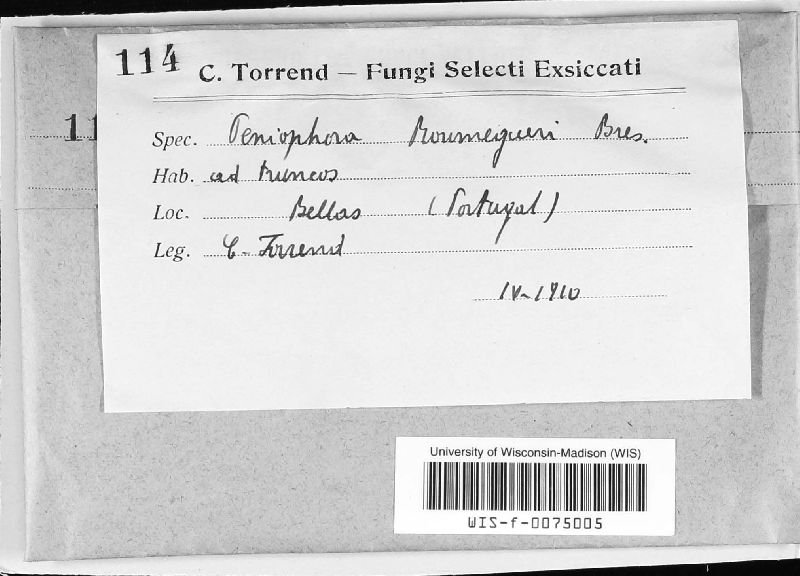 114
C. Torrend — Fungi Selecti Exsiccati
11
Spec. Peniophora Roumegueri Bres.
Hab. ad truncos
Loc. Bellas (Portugal)
Leg. C. Torrend
IV-1910
University of Wisconsin-Madison (WIS)
WIS-f-0075005